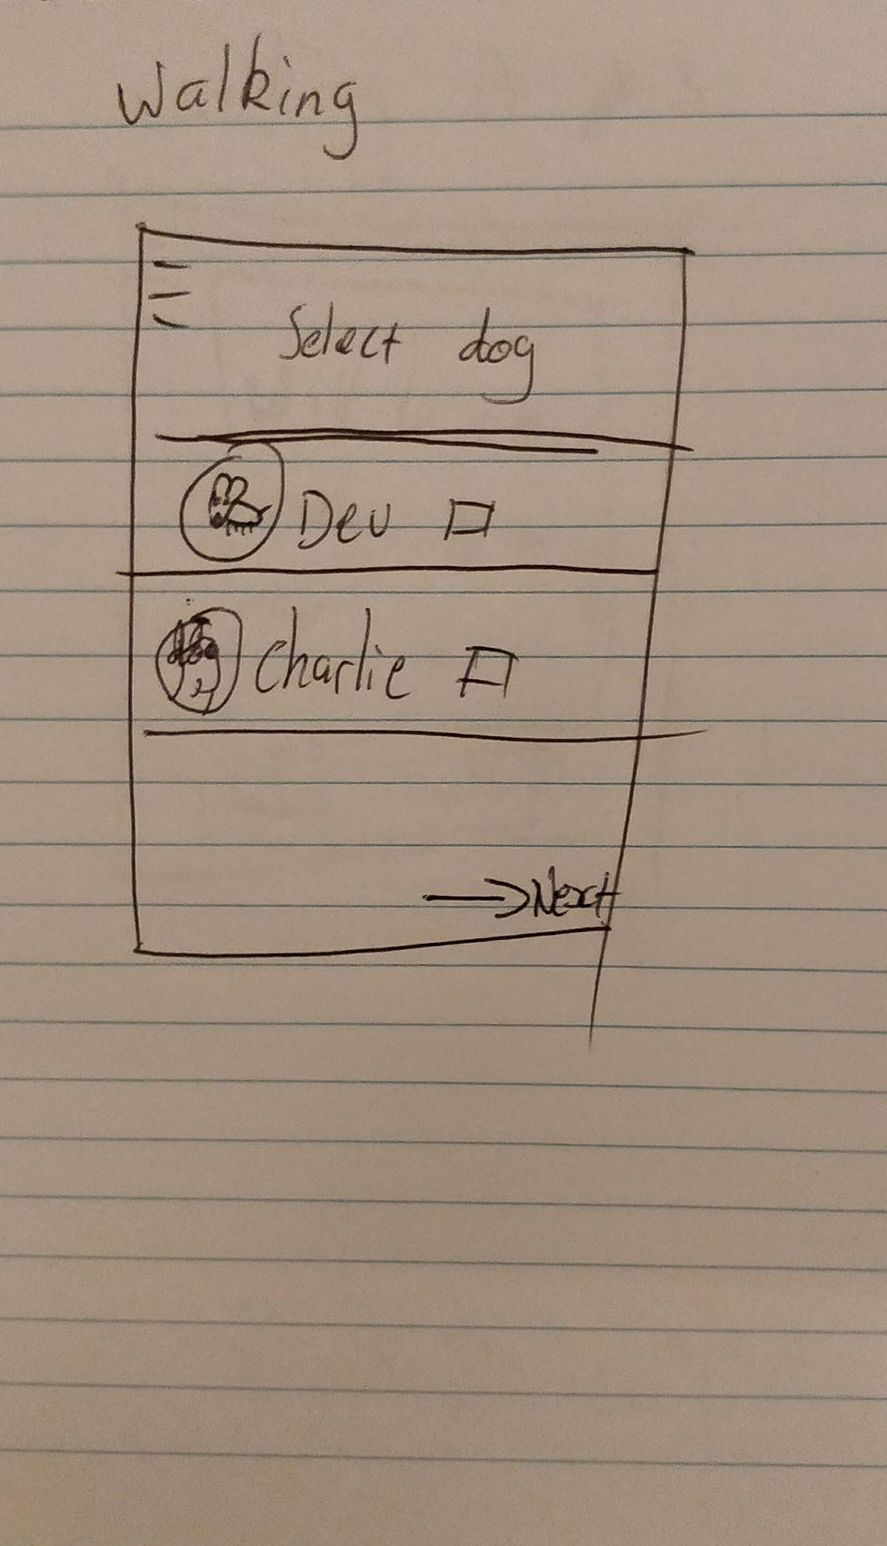 Walking
Select dog
Dev
Charlie
Next